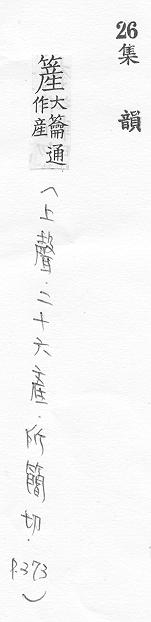 26集韻
簅大籥通作產
(上聲.二十六產.所簡切.P.373)